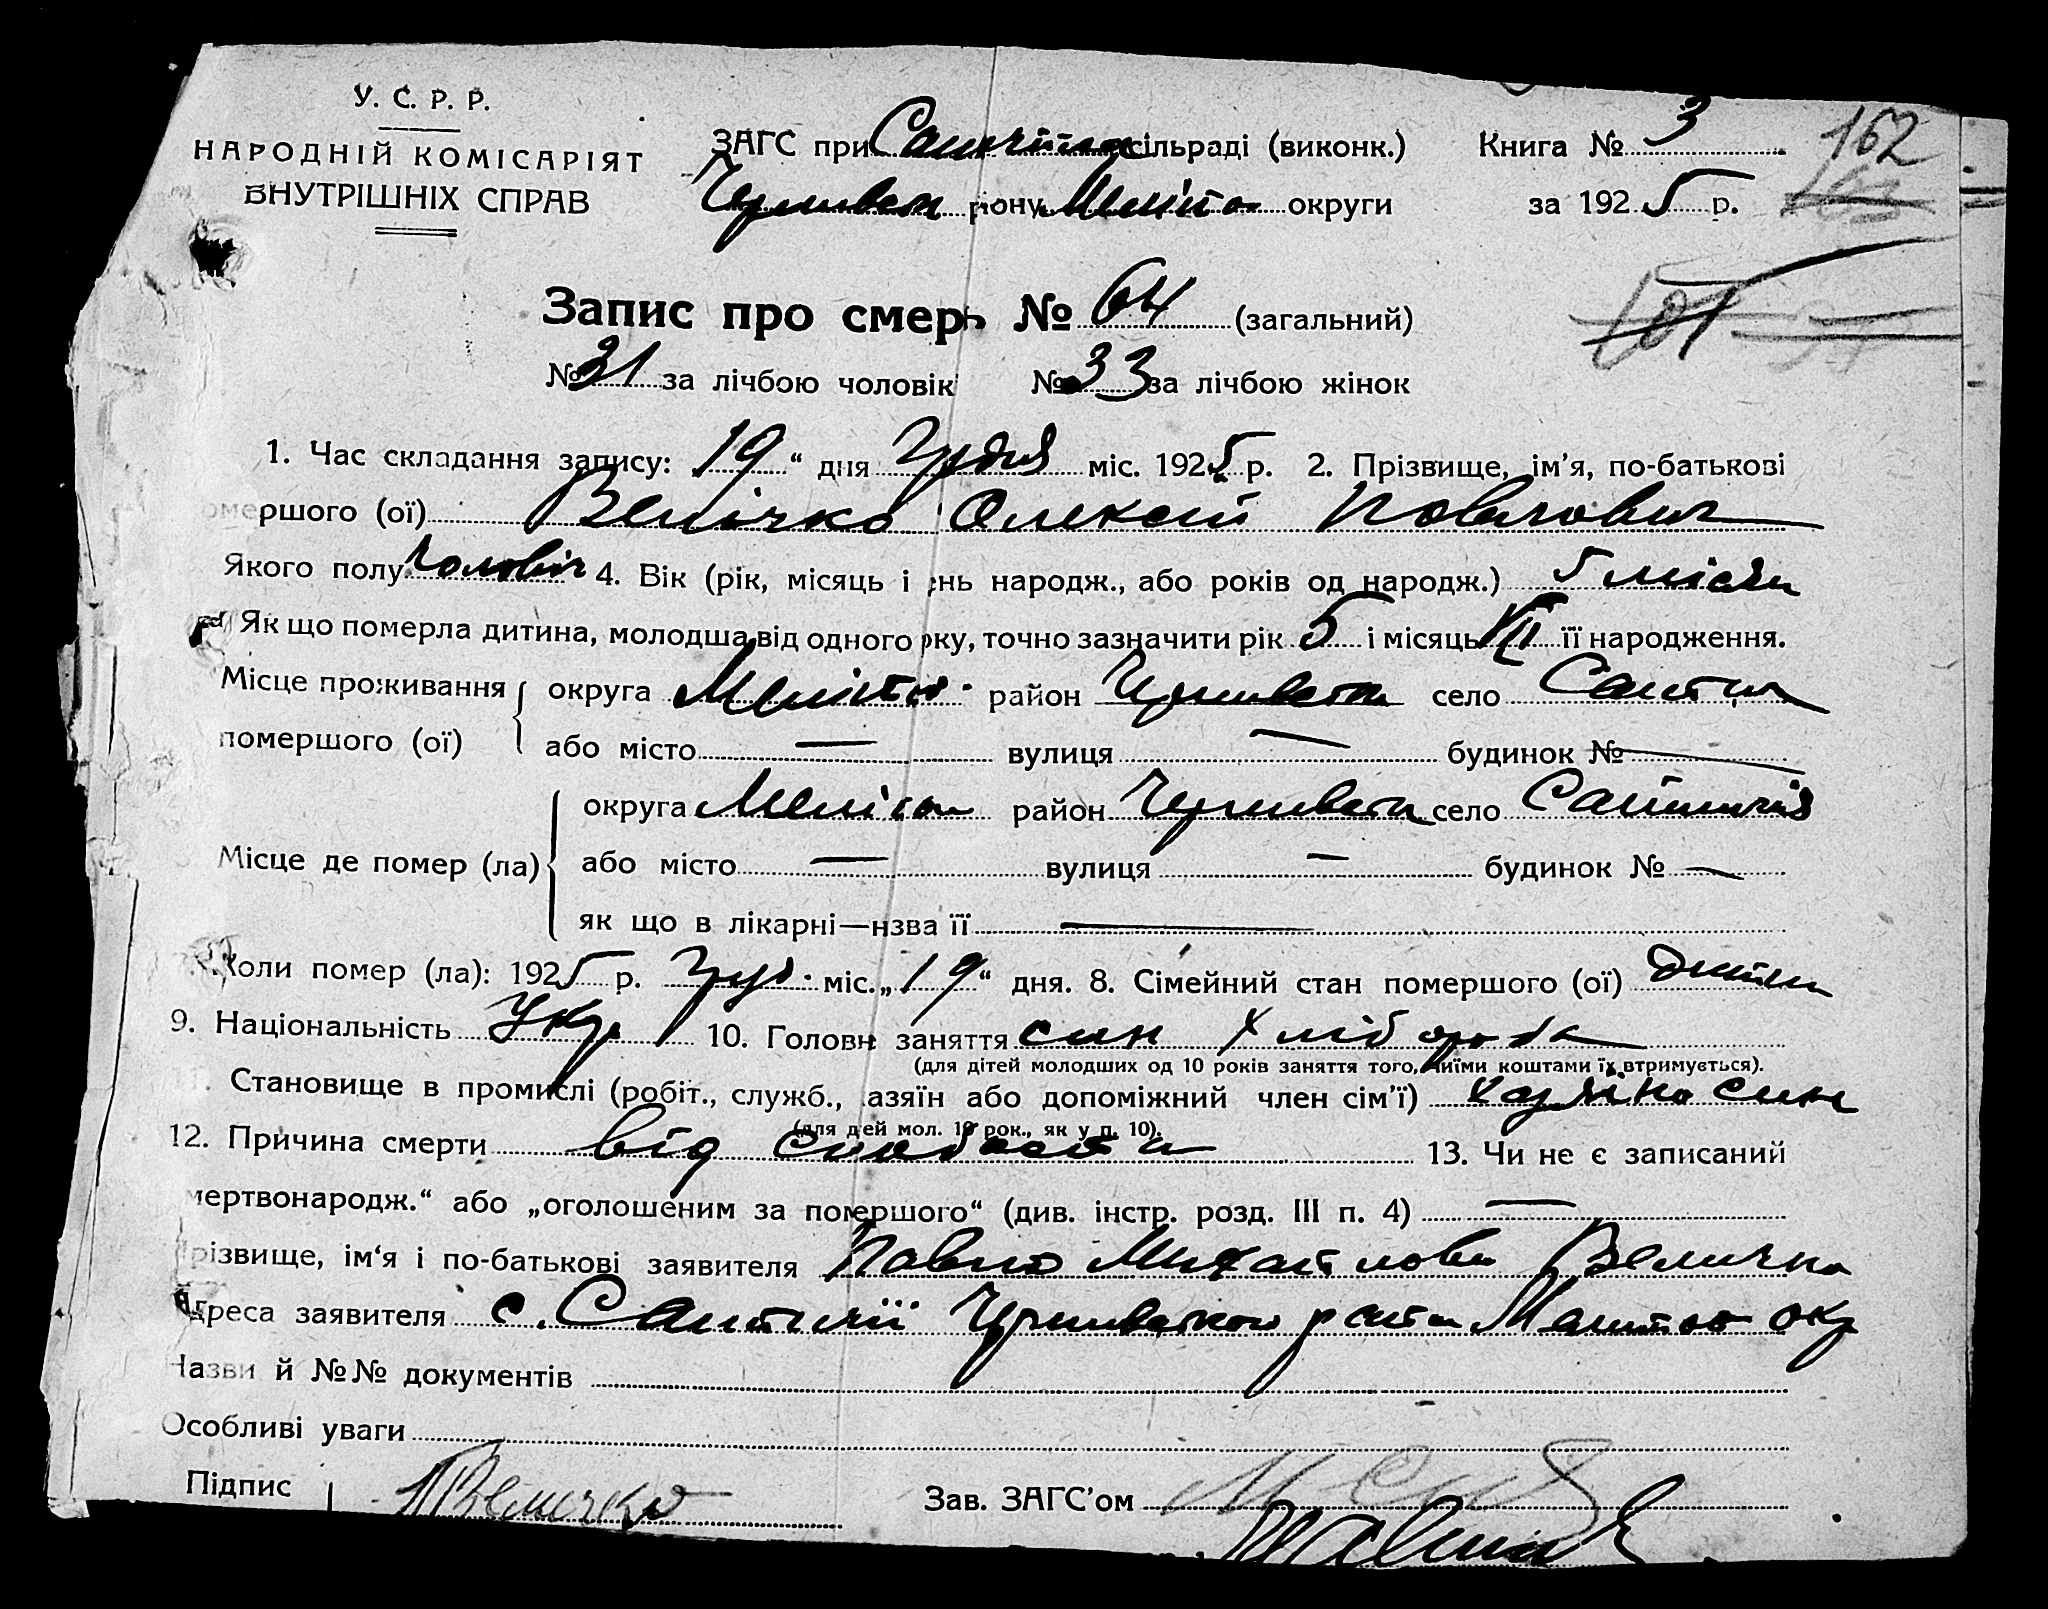 У. С. Р. Р.
НАРОДНІЙ КОМІСАРІЯТ
ВНУТРІШНІХ СПРАВ
ЗАГС при сільраді (виконк.)
рону Меліто округи
Книга № 3
за 1925 р.
162
Запис про смерь № 64 (загальний)
№ 31 за лічбою чоловік № 33 за лічбою жінок
1. Час складання запису: 19 “ дня Грудня міс. 1925 р. 2. Прізвище, ім’я, по-батькові
омершого (ої) Велічко Олексій Повлович
Якого полу чоловіч 4. Вік (рік, місяць і ень народж., або років од народж.) 5 місяц
Як що померла дитина, молодша від одного оку, точно зазначити рік 5 і місяць VII її народження.
Місце проживання помершого (ої)
округа Меліто. район село
або місто — вулиця — будинок № —
Місце де помер (ла)
округа район село
або місто — вулиця — будинок № —
як що в лікарні—нзва її —
Коли помер (ла): 1925 р. Груд. міс. „19“ дня. 8. Сімейний стан помершого (ої) дитин
9. Національність Укр 10. Головн заняття син хлібороба
(для дітей молодших од 10 років заняття того, чиїми коштами їх втримується).
11. Становище в промислі (робіт., служб., азяїн або допоміжний член сім’ї) хазяіна син
(для дей мол. 10 рок., як у п. 10).
12. Причина смерти від слабости 13. Чи не є записаний
мертвонародж.“ або „оголошеним за помершого“ (див. інстр. розд. III п. 4) —
Прізвище, ім‘я і по-батькові заявителя Павло Михайлови Величко
Адреса заявителя с. окр
Назви й №№ документів
Особливі уваги
Підпис Величко Зав. ЗАГС’ом